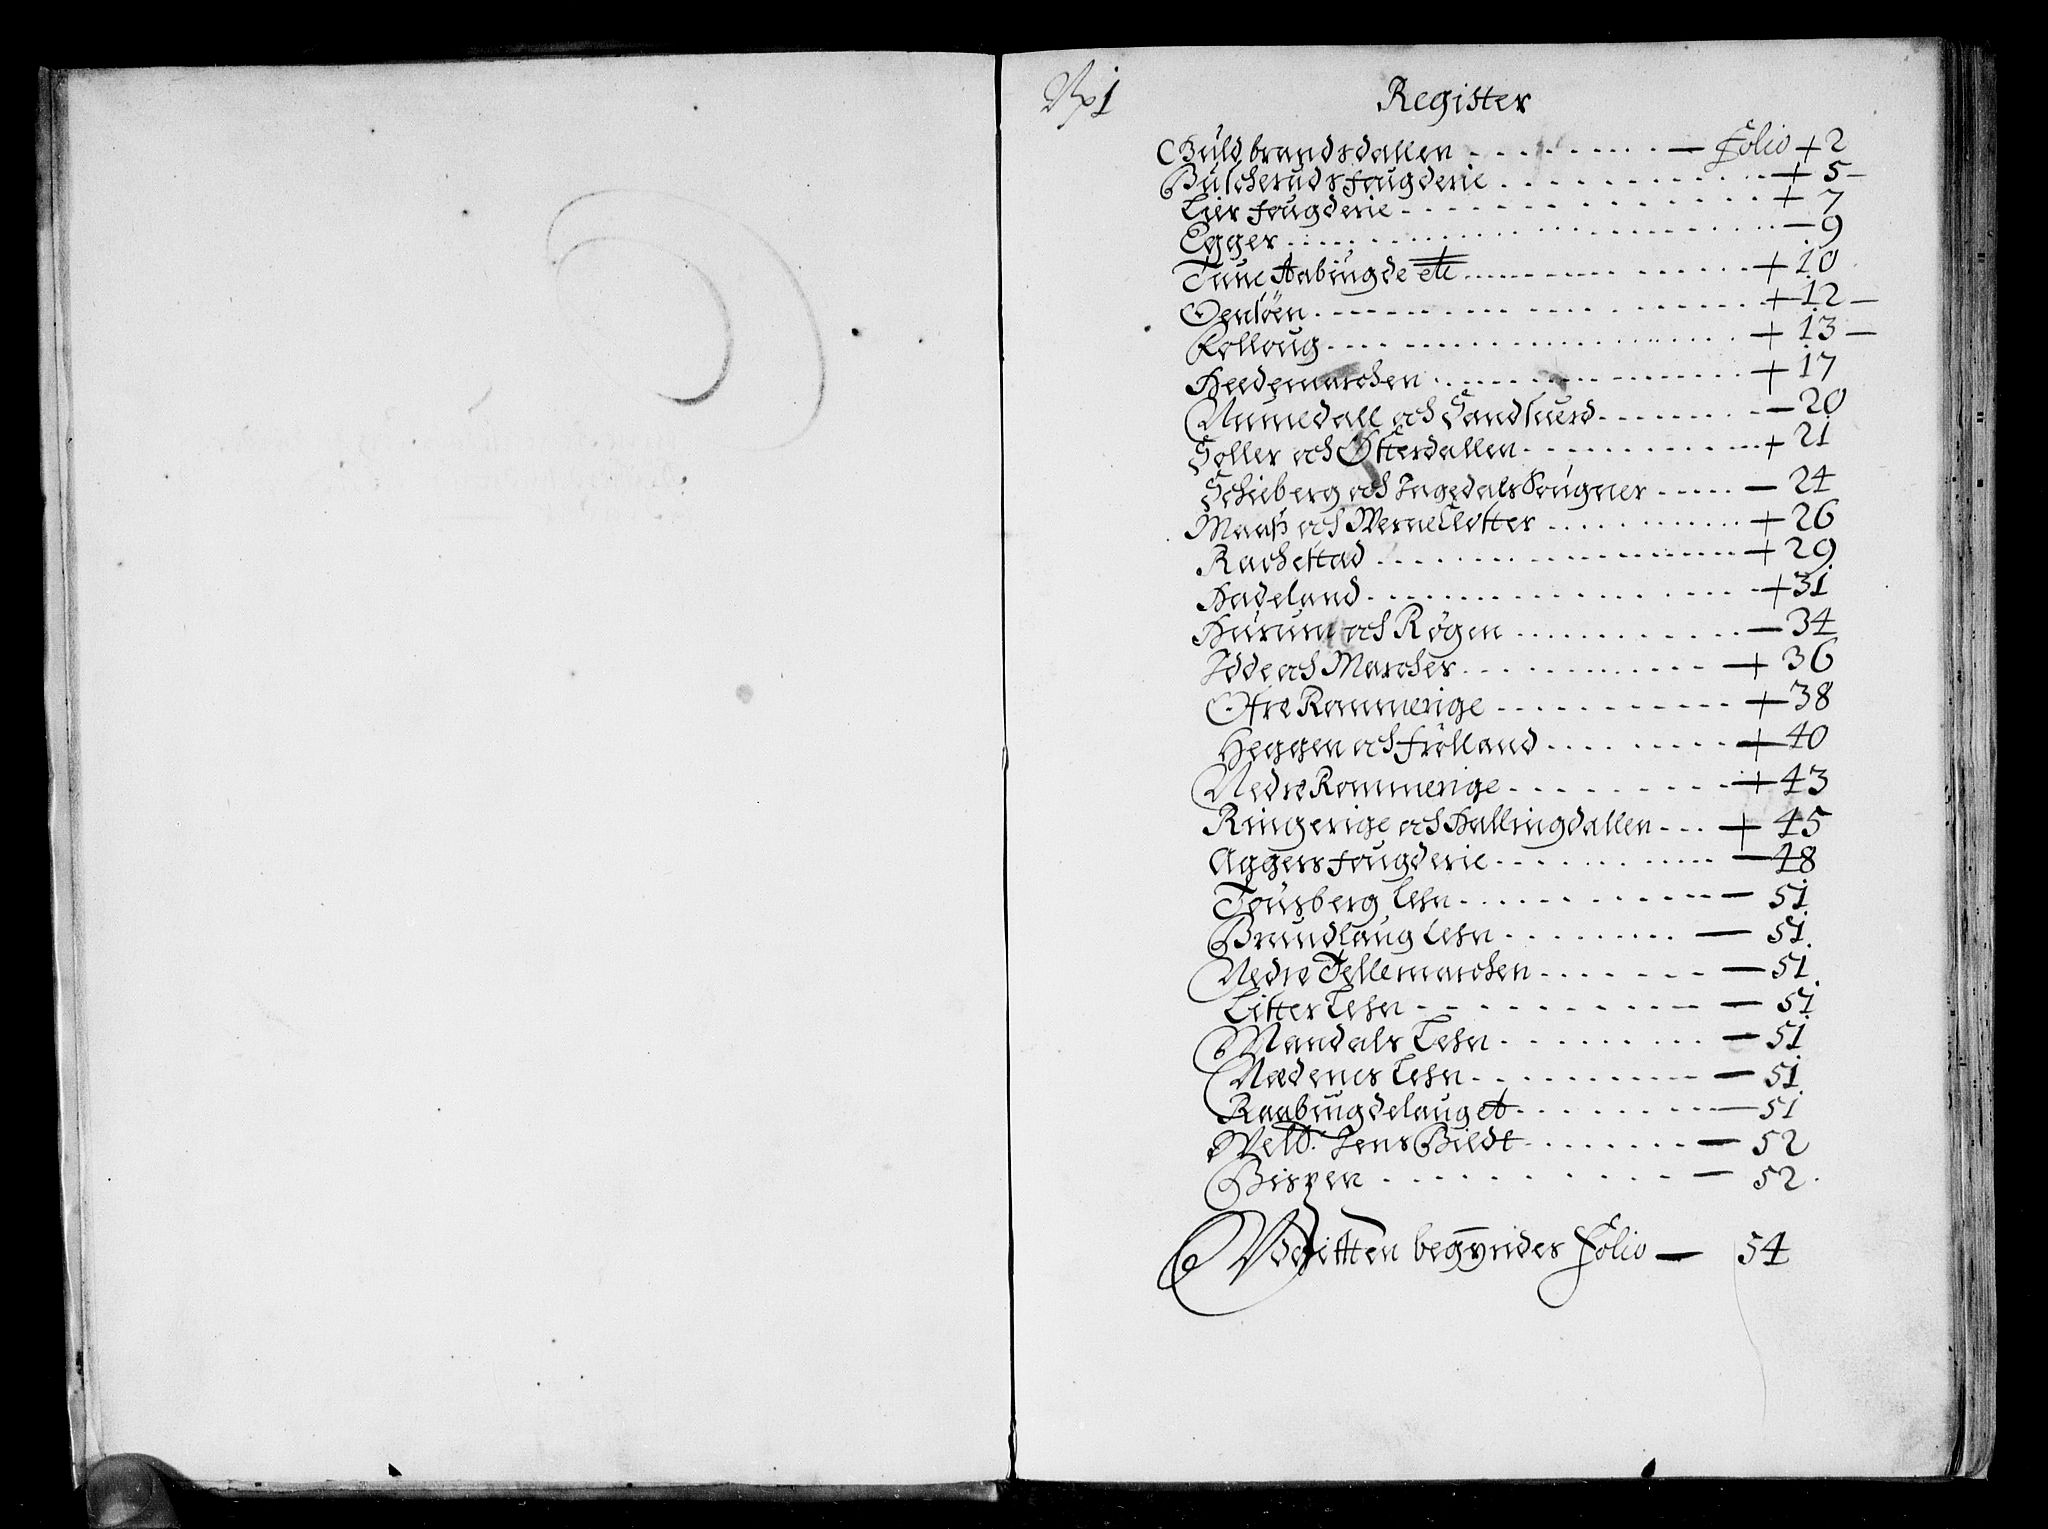 No 1
Register
Guldbrandsdallen - - - - - - - - - — Folio + 2
Buscheruds fougderie - - - - - - - - + 5 —
Lier fougderie - - - - - - - - + 7
Egger - - - - - - - - — 9
Tune Aabÿgde etc - - - - - - - - + 10
Opslöen - - - - - - - - + 12 —
Folloug - - - - - - - - + 13 —
Hedemarchen - - - - - - - - + 17
Numedall och Sandsuerd - - - - - - — 20
Soller och Østerdallen - - - - - - - - + 21
Schieberg och Ingedals Sougner - - - - - — 24
Maaß och Werne Closter - - - - - - - - + 26
Rachestad - - - - - - - - + 29
Hadeland - - - - - - - - + 31
Hurum och Røgen - - - - - - - - — 34
Idde och Marcher - - - - - - - - + 36
Ofre Rommerige - - - - - - - - + 38
Heggen och frölland - - - - - - - - + 40
Nedre Rommerige - - - - - - - - + 43
Ringerige och Hallingdallen - - - + 45
Aggers fougderie - - - - - - - - — 48
Tønsberg Lehn - - - - - - - - — 51
Brundlaug Lehn - - - - - - - - — 51
Nedre Tellemarchen - - - - - - - — 51
Lister Lehn - - - - - - - - — 51
Mandals Lehn - - - - - - - - — 51
Nedenes Lehn - - - - - - - - — 51
Raabÿgdelauget - - - - - - - - — 51
Welb. Jens Bieldt - - - - - - - — 52
Bispen - - - - - - - - — 52
Udgifften begyndes Folio — 54